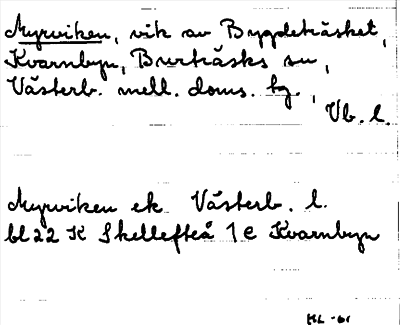 Myrviken, vik av Bygdeträsket,
Kvarnbyn, Burträsks sn,
Västerb. mell. doms. tg.,
Vb. l.
Myrviken ek Västerb. l.
bl 22 K Skellefteå 1 e Kvarnbyn
ML -61